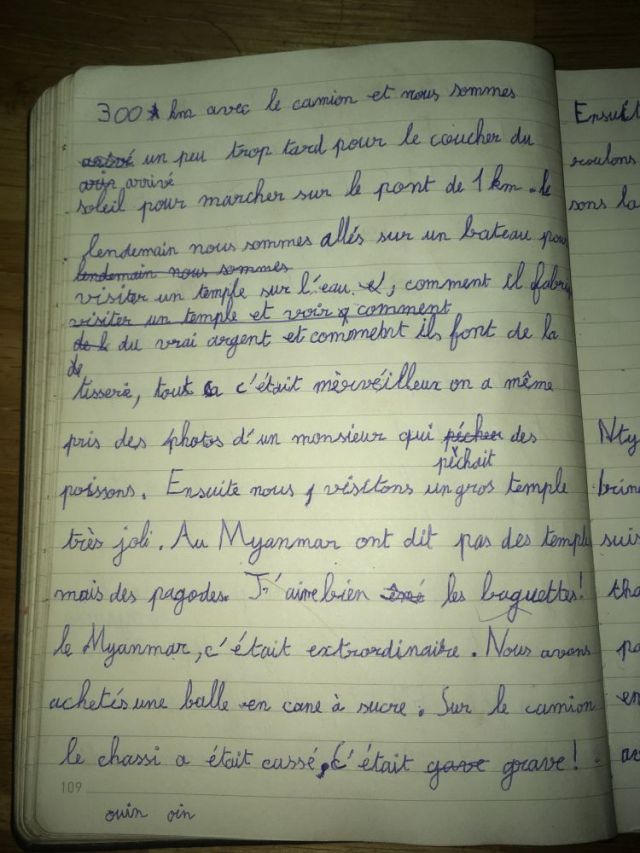 300 km avec le camion et nous sommes
arrivé un peu trop tard pour le coucher du
soleil pour marcher sur le pont de 1 km. le
lendemain nous sommes allés sur un bateau pour
lendemain nous sommes
visiter un temple sur l'eau, comment il fabri
visiter un temple et voir comment
du vrai argent et comment ils font de la
de
tisserie, tout ça c'était mèrvéilleux on a même
pris des photos d'un monsieur qui pécher des
pêchait
poissons. Ensuite nous, visitons un gros temple
très joli. Au Myanmar ont dit pas des temple
mais des pagodes. J'aime bien les baguettes!
le Myanmar, c'était extrordinaire. Nous avons
achetés une balle en cane à sucre. Sur le camion
le chassi a était cassé, c'était gave grave!
109
ouin oin
Ensuit
roulons
sons la
Nty
brin
suis
tha
pa
en
av